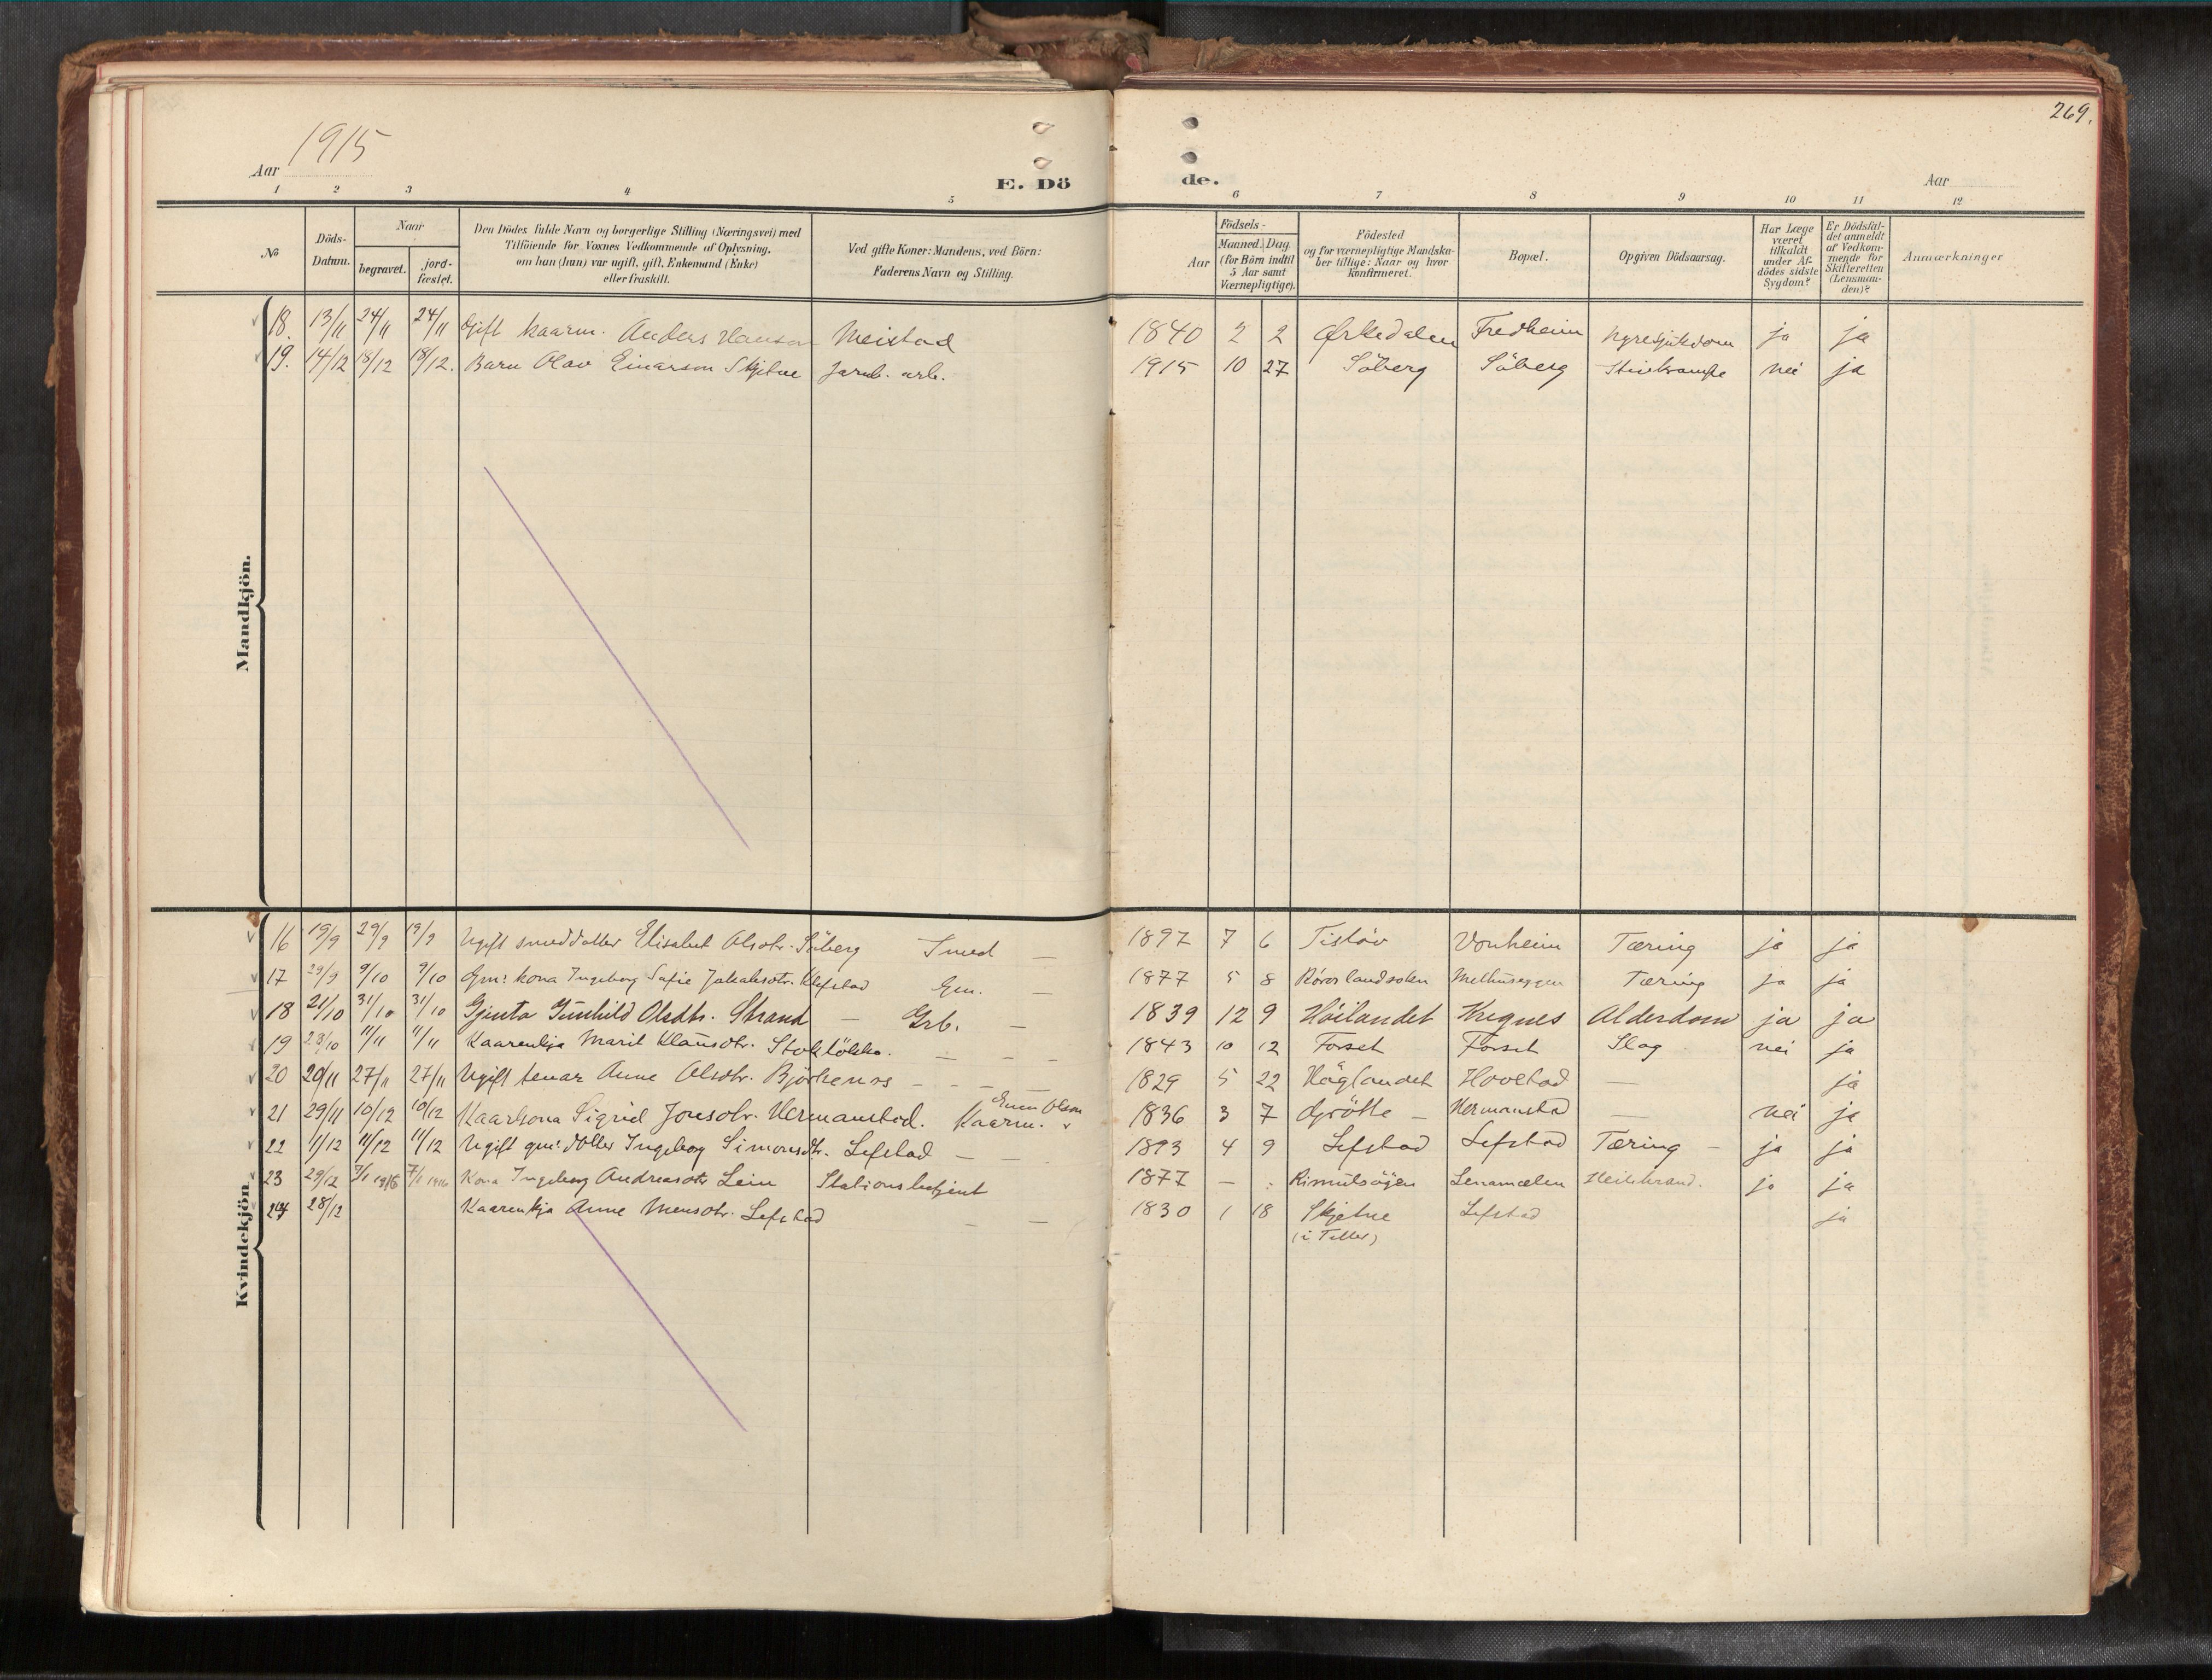 269.
Aar 1915
E. Dö
de.
Aar
1 2 3 4 5 6 7 8 9 10 11 12
№
Döds-Datum.
Naar
begravet.
jord-fæstet.
Den Dödes fulde Navn og borgerlige Stilling (Næringsvei) med
Tilföiende for Voxnes Vedkommende af Oplysning,
om han (hun) var ugift, gift, Enkemand (Enke)
eller fraskilt.
Ved gifte Koner: Mandens, ved Börn:
Faderens Navn og Stilling.
Aar
Födsels-
Maaned. Dag.
(for Börn indtil
5 Aar samt
Værnepligtige).
Födested
og for værnepligtige Mandska-
ber tillige: Naar og hvor
konfirmeret.
Bopæl.
Opgiven Dödsaarsag.
Har Læge
været
tilkaldt
under Af-
dödes sidste
Sygdom?
Er Dödsfal-
det anmeldt
af Vedkom-
mende for
Skifteretten
(Lensman-
den)?
Anmærkninger
Mandkjön.
18. 13/11 24/11 24/11 Gift kaarm. Anders Hanson Meistad 1840 2 2 Ørkedalen Fredheim Nyresjukdom ja ja
19. 14/12 18/12 18/12. Barn Olav Einarson Skjetne Jarnb. arb. 1915 10 27 Söberg Söberg Stivkrampe nei ja
Kvindekjön.
16 19/9 29/9 19/9 Ugift smeddatter Elisabet Olsdtr. Söberg Smed — 1897 7 6 Tislöv Vonheim Tæring ja ja
17 29/9 9/10 9/10 Gm: kona Ingeborg Sofie Jakobsdtr. Klefstad Gm. — 1877 5 8 Melhuseggen Tæring ja ja
18 21/10 31/10 31/10 Gjenta Gunhild Olsdtr. Strand — Grb. — 1839 12 9 Höilandet Kregnes Alderdom ja ja
19 23/10 11/11 11/11 Kaarenkja Marit Klausdtr. — — — 1843 10 12 Forset Forset Slag nei ja
20 20/11 27/11 27/11 Ugift tenar Anne Olsdtr. — — — 1829 5 22 Höglandet Hovstad — ja
21 29/11 10/12 10/12 Kaarkona Sigrid Jonsdtr. Hermanstad. Kaarm. Olson 1836 3 7 Grötte — Hermanstad — nei ja
22 1/12 11/12 11/12 Ugift gm: dotter Ingeborg Simonsdtr. Lefstad — — 1893 4 9 Lefstad Lefstad Tæring — ja ja
23 29/12 7/1 1916 7/1 1916 Kona Ingeborg Andreasdtr Lein Stationsbetjent 1877 — Rimulsöyen Lenamælen ja ja
24 28/12 Kaarenkja Anne Monsdtr. Lefstad — — 1830 1 18 Skjetne Lefstad ja
(i Tiller)